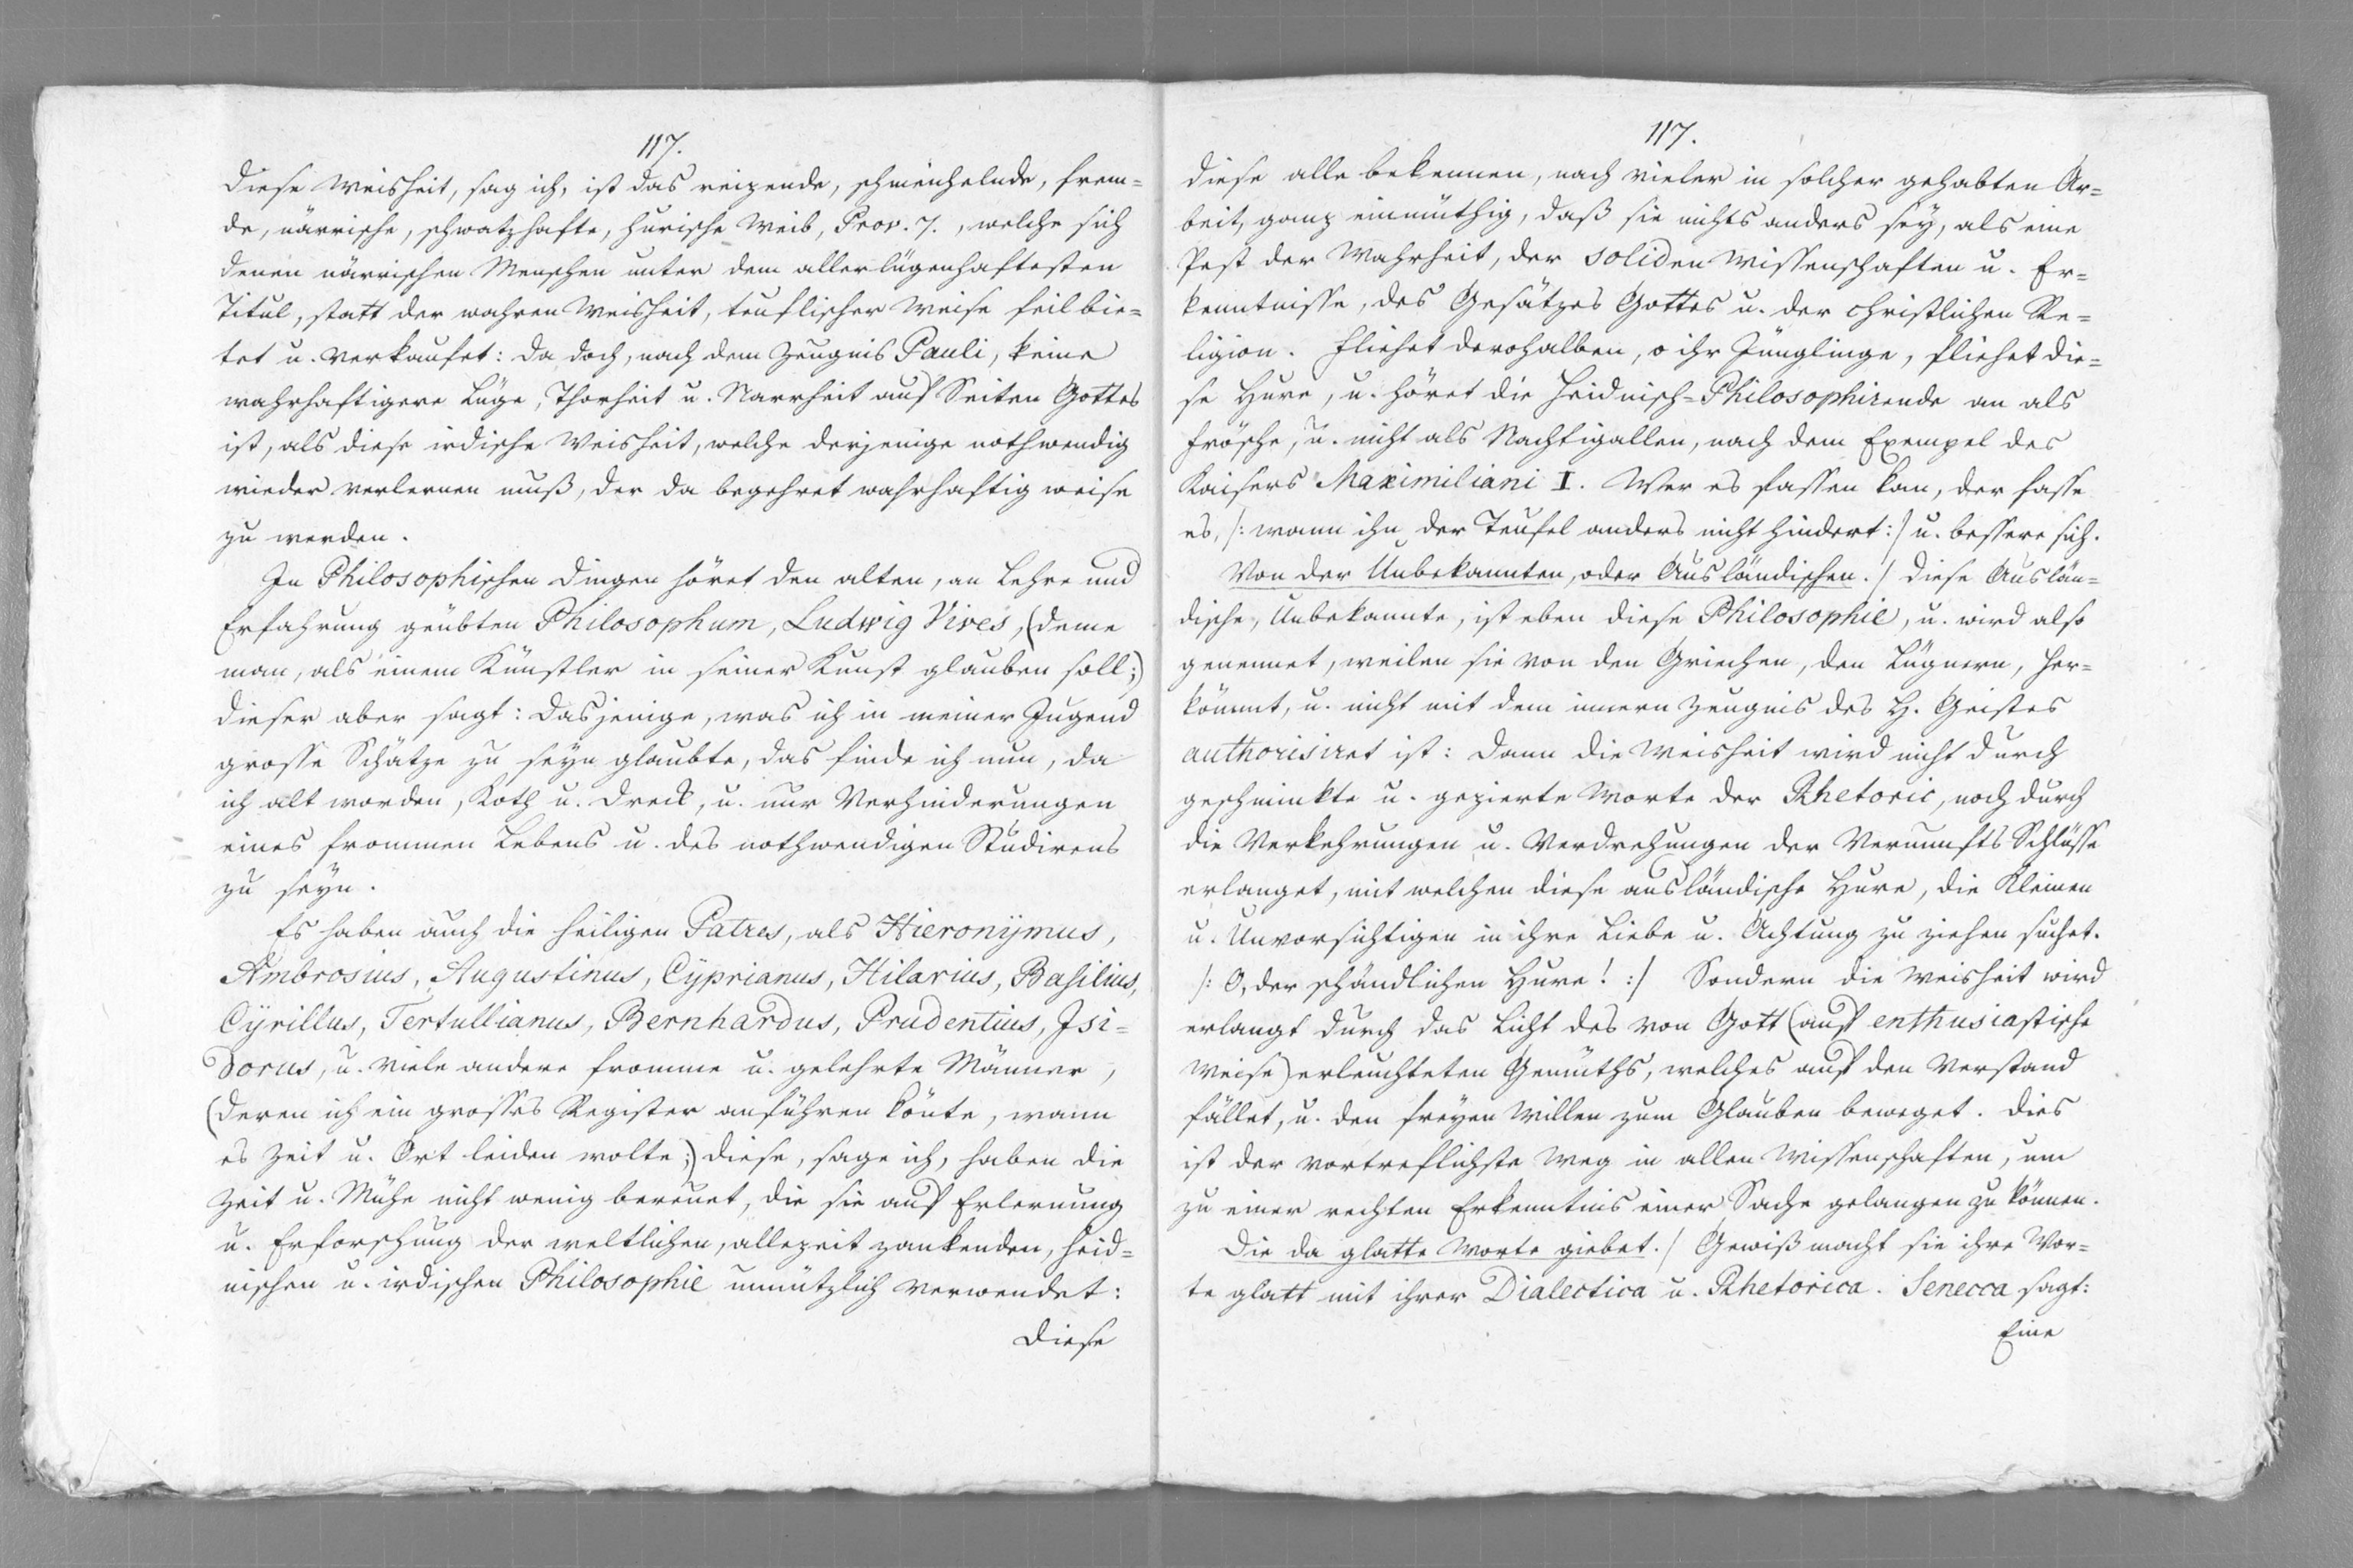 117.
Diese Weisheit, sag ich, ist das reizende, schmeichelnde, frem=
de, närrische, schwatzhafte, hurische Weib, Prov. 7., welche sich
denen närrischen Menschen unter dem allerlügenhaftesten
Titul, statt der wahren Weisheit, teuflischer Weise feil bie=
tet u. verkaufet: da doch, nach dem Zeugnis Pauli, keine
wahrhaftigere Lüge, Thorheit u. Narrheit auf Seiten Gottes
ist, als diese irdische Weisheit, welche derjenige nothwendig
wieder verlernen muß, der da begehret wahrhaftig weise
zu werden.
In Philosophischen Dingen höret den alten, an Lehre und
Erfahrung geübten Philosophum, Ludwig Vives, (deme
man, als einem Künstler in seiner Kunst glauben soll;)
dieser aber sagt: Dasjenige, was ich in meiner Jugend
grosse Schätze zu seyn glaubte, das finde ich nun, da
ich alt worden, Koth u. Dreck, u. nur Verhinderungen
eines frommen Lebens u. des nothwendigen Studirens
zu seyn.
Es haben auch die heiligen Patres, als Hieronÿmus,
Ambrosius, Augustinus, Cÿprianus, Hilarius, Basilius,
Cÿrillus, Tertullianus, Bernhardus, Prudentius, Isi=
dorus, u. viele andere fromme u. gelehrte Männer,
(deren ich ein grosses Register anführen könte, wann
es Zeit u. Ort leiden wolte;) diese, sage ich, haben die
Zeit u. Mühe nicht wenig bereuet, die sie auf Erlernung
u. Erforschung der weltlichen, allezeit zankenden, heid=
nischen u. irdischen Philosophie unnützlich verwendet:
Diese
117.
Diese alle bekennen, nach vieler in solcher gehabten Ar=
beit, ganz einmüthig, daß sie nichts anders sey, als eine
Pest der Wahrheit, der soliden Wissenschaften u. Er=
kenntnisse, des Gesätzes Gottes u. der christlichen Re=
ligion. Fliehet derohalben, o ihr Jünglinge, fliehet die=
se Hure, u. höret die heidnisch=Philosophirende an als
Frösche, u. nicht als Nachtigallen, nach dem Exempel des
Kaisers Maximiliani I. Wer es fassen kan, der fasse
es, /: wann ihn der Teufel anders nicht hindert :/ u. bessere sich.
Von der Unbekannten, oder Ausländischen. / Diese Auslän=
dische, Unbekannte, ist eben diese Philosophie, u. wird also
genennet, weilen sie von den Griechen, den Lügnern, her=
kömmt, u. nicht mit dem innern Zeugnis des H. Geistes
authorisiret ist: Dann die Weisheit wird nicht durch
geschminkte u. gezierte Worte der Rhetoric, noch durch
die Verkehrungen u. Verdrehungen der Vernunfts Schlüsse
erlanget, mit welchen diese ausländische Hure, die Kleinen
u. Unvorsichtigen in ihre Liebe u. Achtung zu ziehen suchet.
/: O, der schändlichen Hure! :/ Sondern die Weisheit wird
erlangt durch das Licht des von Gott (auf enthusiastische
Weise) erleuchteten Gemüths, welches auf den Verstand
fället, u. den freyen Willen zum Glauben beweget. Dies
ist der vortreflichste Weg in allen Wissenschaften, um
zu einer rechten Erkenntnis einer Sache gelangen zu können.
Die da glatte Worte giebet. / Gewiß macht sie ihre Wor=
te glatt mit ihrer Dialectica u. Rhetorica. Senecca sagt:
Eine